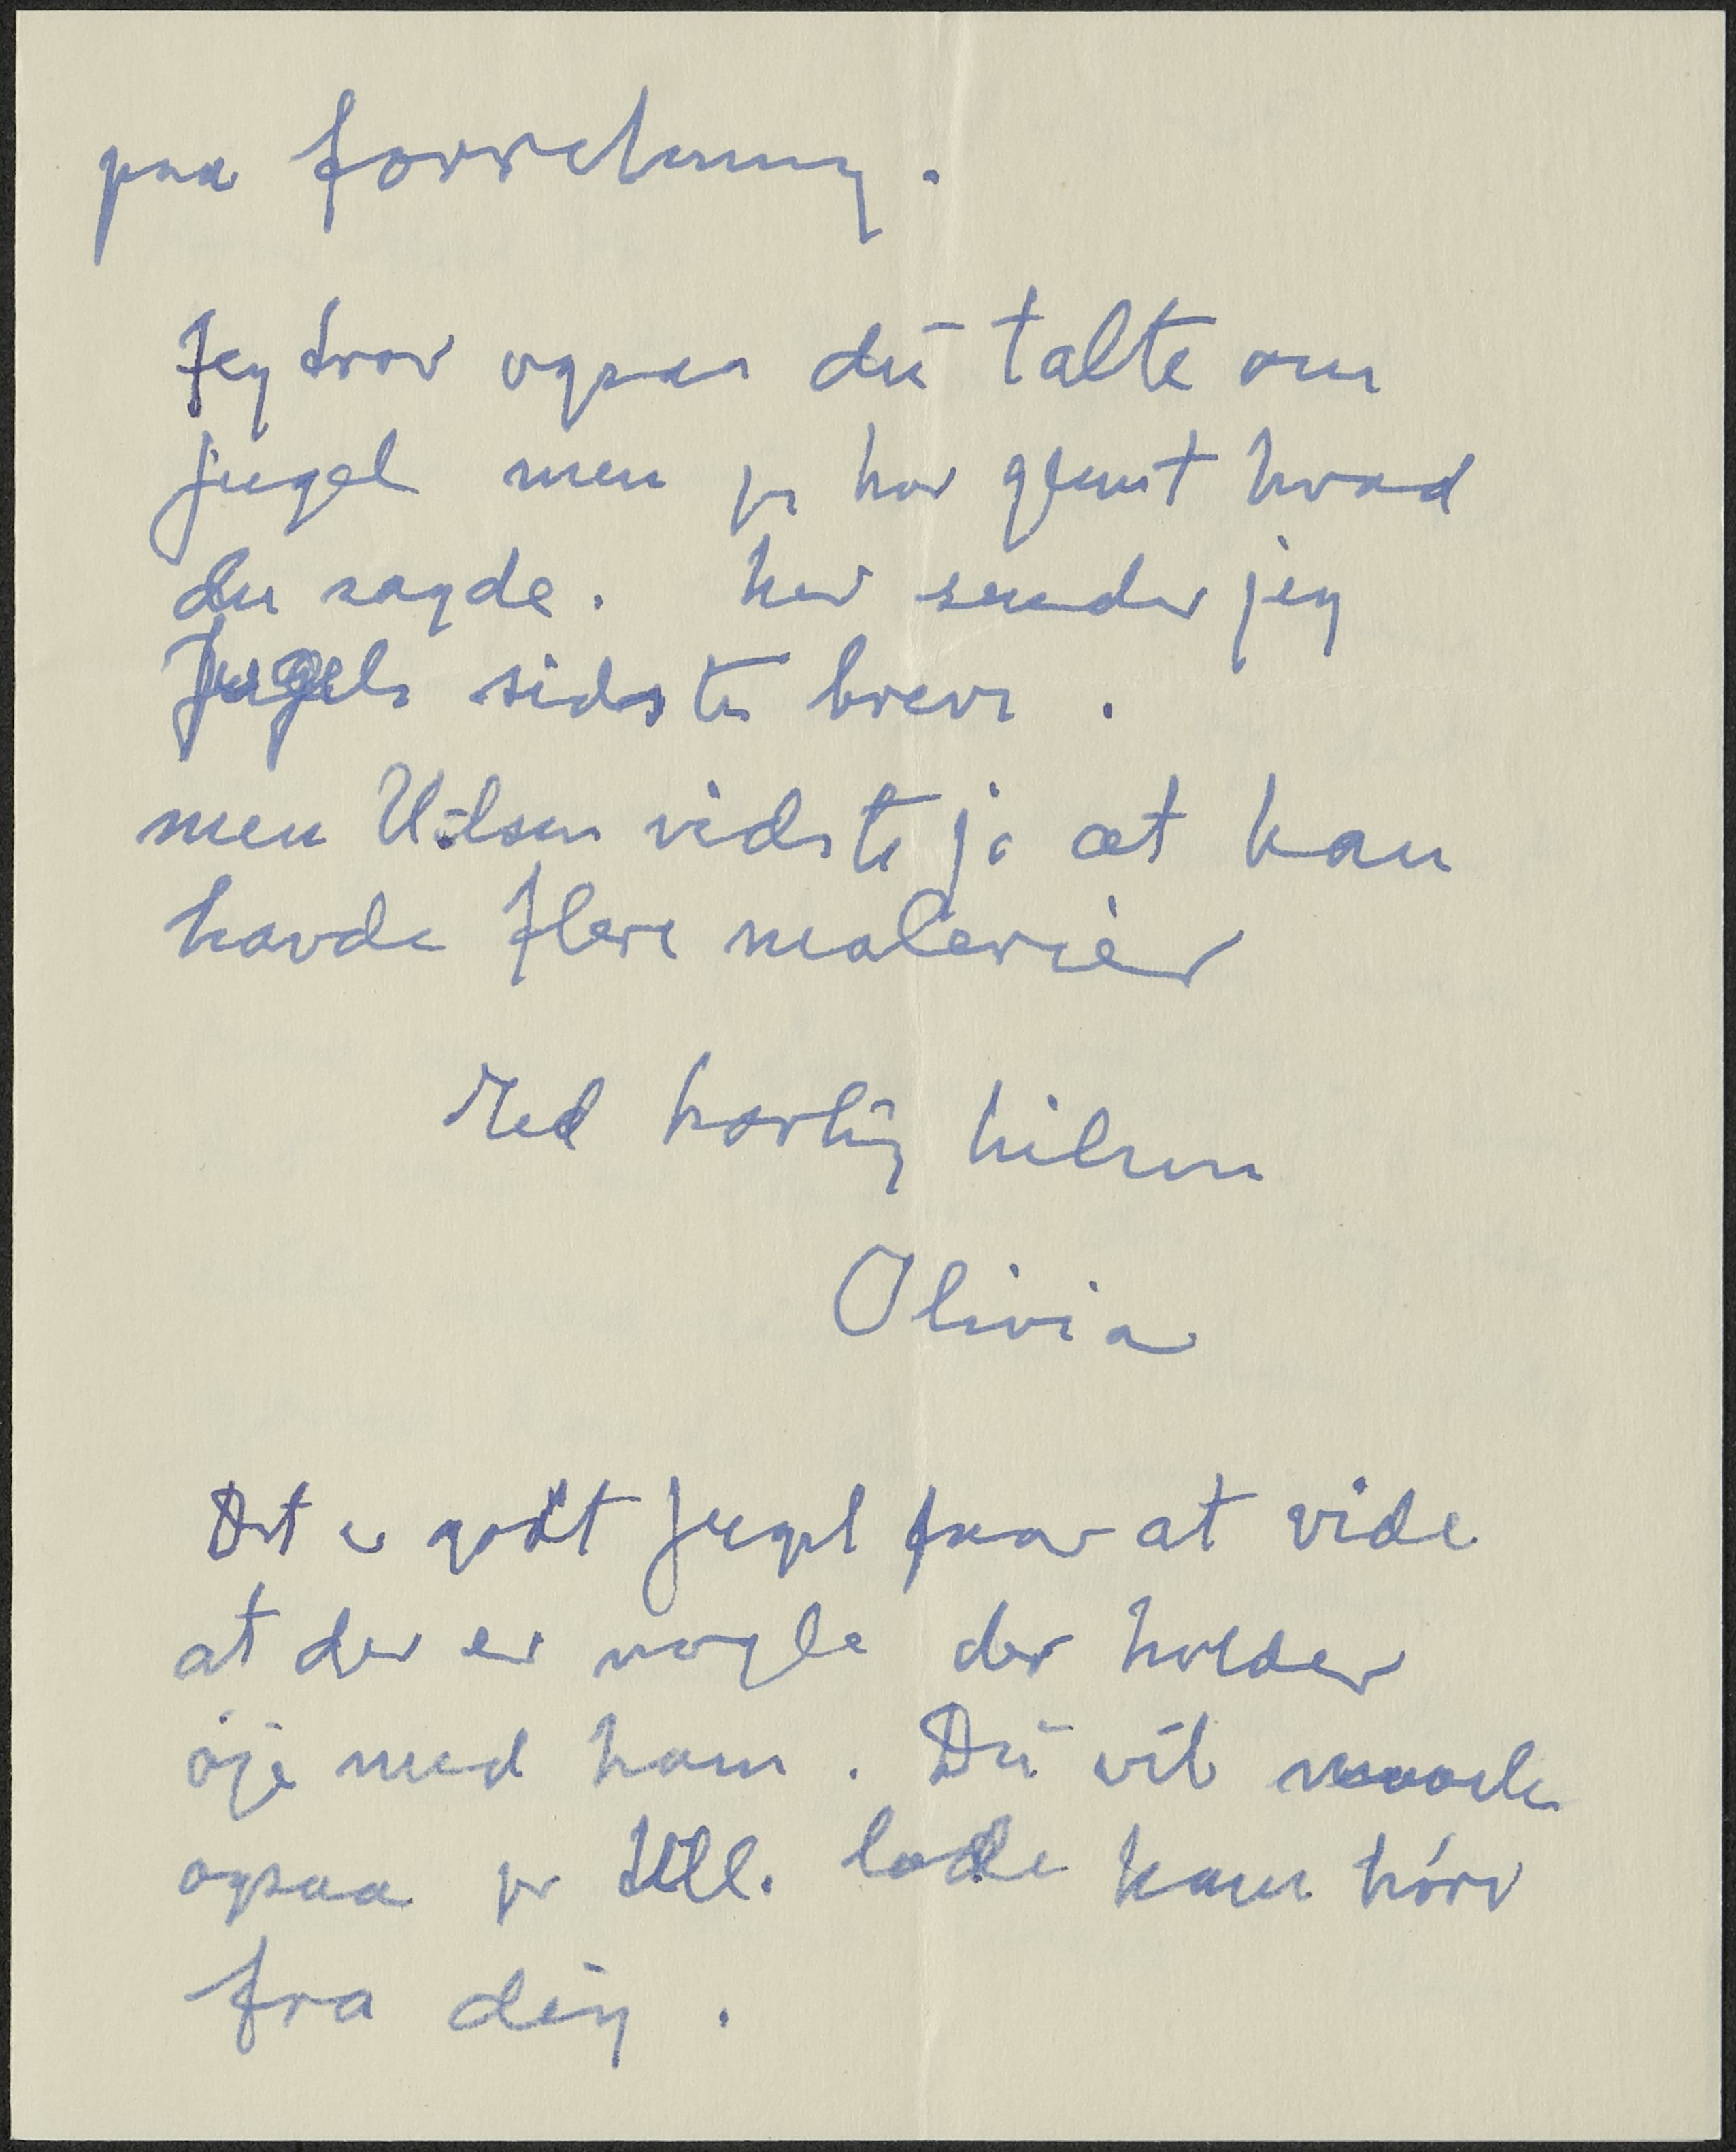 paa forretning.
Jeg tror ogsaa du talte om
Jugel men jeg har glemt hvad
du sagde. her sender jeg
Jugels sidste breve.
men Uilsen vidste jo at han
havde flere malerier
Med kærlig hilsen
Olivia
Det er godt Jugel faar at vide
at der er nogle der holder
öje med ham. Du vil maaske
ogsaa pr lade ham höre
fra dig.